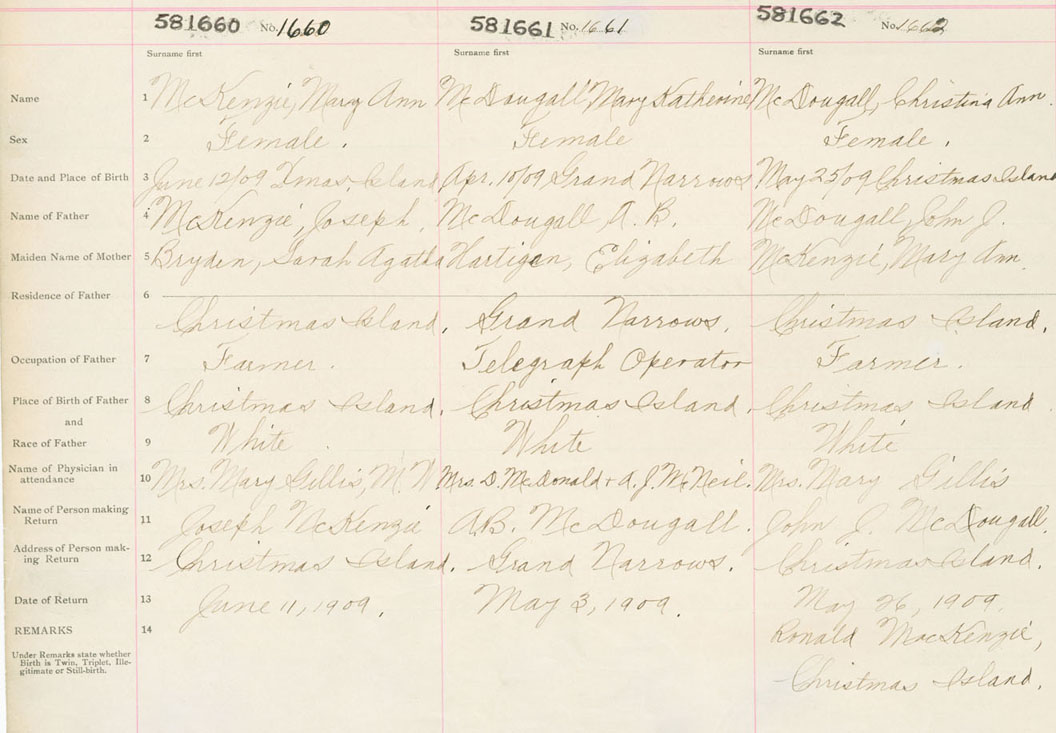 581660 No. 1660 581661 No. 1661 581662 No. 1662
Surname first Surname first Surname first
Name 1 McKenzie, Mary Ann McDougall, Mary Katherine McDougall, Christina Ann.
Sex 2 Female. Female Female.
Date and Place of Birth 3 June 12/09 Xmas, Island Apr. 10/09 Grand Narrows May 25/09 Christmas Island
Name of Father 4 McKenzie, Joseph. McDougall, A. B. McDougall, John J.
Maiden Name of Mother 5 Bryden, Sarah Agatha Hartigan, Elizabeth McKenzie, Mary Ann.
Residence of Father 6
Christmas Island. Grand Narrows. Christmas Island.
Occupation of Father 7 Farmer. Telegraph Operator Farmer.
Place of Birth of Father 8 Christmas Island. Christmas Island. Christmas Island
and
Race of Father 9 White. White White
Name of Physician in
attendance 10 Mrs. Mary Gillis, M.W Mrs. D. McDonald + A. J. McNeil. Mrs. Mary Gillis
Name of Person making
Return 11 Joseph McKenzie A.B. McDougall. John J. McDougall.
Address of Person mak-
ing Return 12 Christmas Island. Grand Narrows. Christmas Island.
Date of Return 13 June 11, 1909. May 3, 1909. May 26, 1909.
REMARKS 14 Ronald MacKenzie,
Under Remarks state whether
Birth is Twin, Triplet, Ille-
gitimate or Still-birth.
Christmas Island.